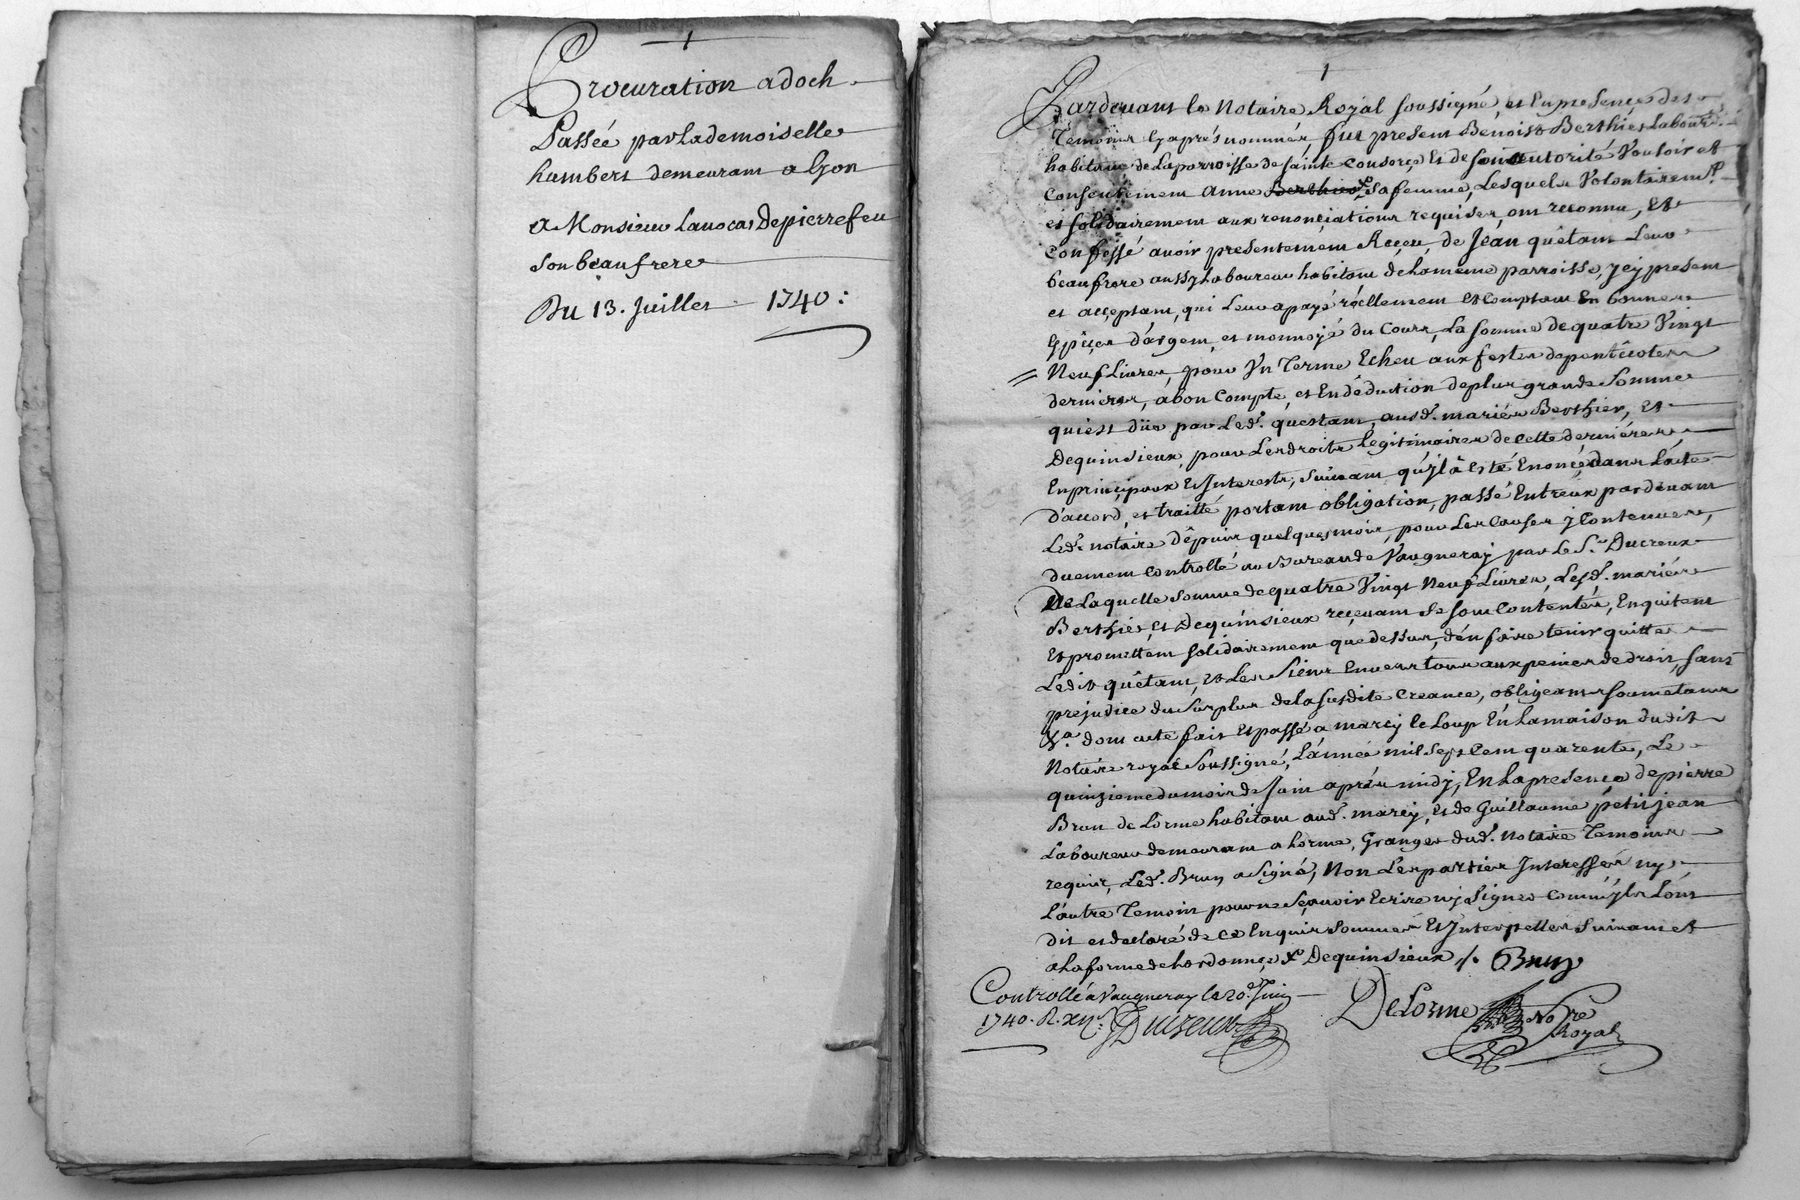 Procuration adoch
Passée par lademoiselle
humbert demeurant a Lyon
a Monsieur Lavocat Depierrefeu
son beaufrere
Du 13. Juillet 1740:
Pardevant le Notaire Royal soussigné, et En presence des
Temoins Cy aprés nommés, fut present Benoist Berthier Labour.
habitant de La parroisse de sainte Consorce, Et de son autorité Vouloir et
Consentement anne Berthier sa femme, Lesquels Volontairemt.
et solidairement aux renonciations requises, ont reconnu, Et
Confessé avoir presentement Reçeu, de Jean quêtant Leur
beaufrere aussy Laboureur habitant de La même parroisse, y cy present
et acceptant, qui Leur a payé réellement Et Comptant En bonnes
Espéces d'argent, et monnoyé du Cours, La somme de quatre Vingt
Neuf Livres, pour Un Terme Echeu aux festes de pentêcotes
dernieres, abon Compte, et En déduction de plus grande Somme
qui est düe par Led. questant, ausd. mariés Berthier, Et
Dequinsieux, pour Les droits legitimaires de Cette derniére,
En principaux Et Interests, suivant qu'jl à Esté Enoncé dans L'acte
d'accord, et traitté portant obligation, passé Entréux pardevant
Led. notaire dépuis quelques mois, pour Les Causes y Contenues,
duement Controllé au Bureau de Vaugneray par Le Sr. Ducreux
De Laquelle somme de quatre Vingt Neuf Livres, Lesd. mariés
Berthier, Et Dequinsieux reçevant se sont Contentés, En quitent
Et promettent solidairement que dessus, d'én faire tenir quitte
Ledit quêtant, et Les siens Envers tous aux peines de droit, sans
préjudice du surplus de la susdite Creance, obligeant soumetans
&a. dont acte fait Et passé a marcy le Loup En La maison dudit
Notaire royal Soussigné, L'année mil sept Cent quarente, Le
quinzieme du mois de Juin aprés midy, En La presence de pierre
Brun de Lorme habitant aud. marcy, Et de Guillaume petitjean
Laboureur demeurant a Lorme, Granger dud. Notaire Temoins
requis, Led. Brun a signé, Non Les parties Interessées ny
L'autre Temoin pour ne sçavoir Ecrire ny signer Comm'jls L'ont
dit et declaré de ce Enquis sommés Et Interpellés suivant Et
a La forme de Lordonnce & Dequinsieux ./. Brun
Controllé a Vaugneray le 20e. Juin
1740. R. xijs. Ducreux
DeLorme Nore
Royal